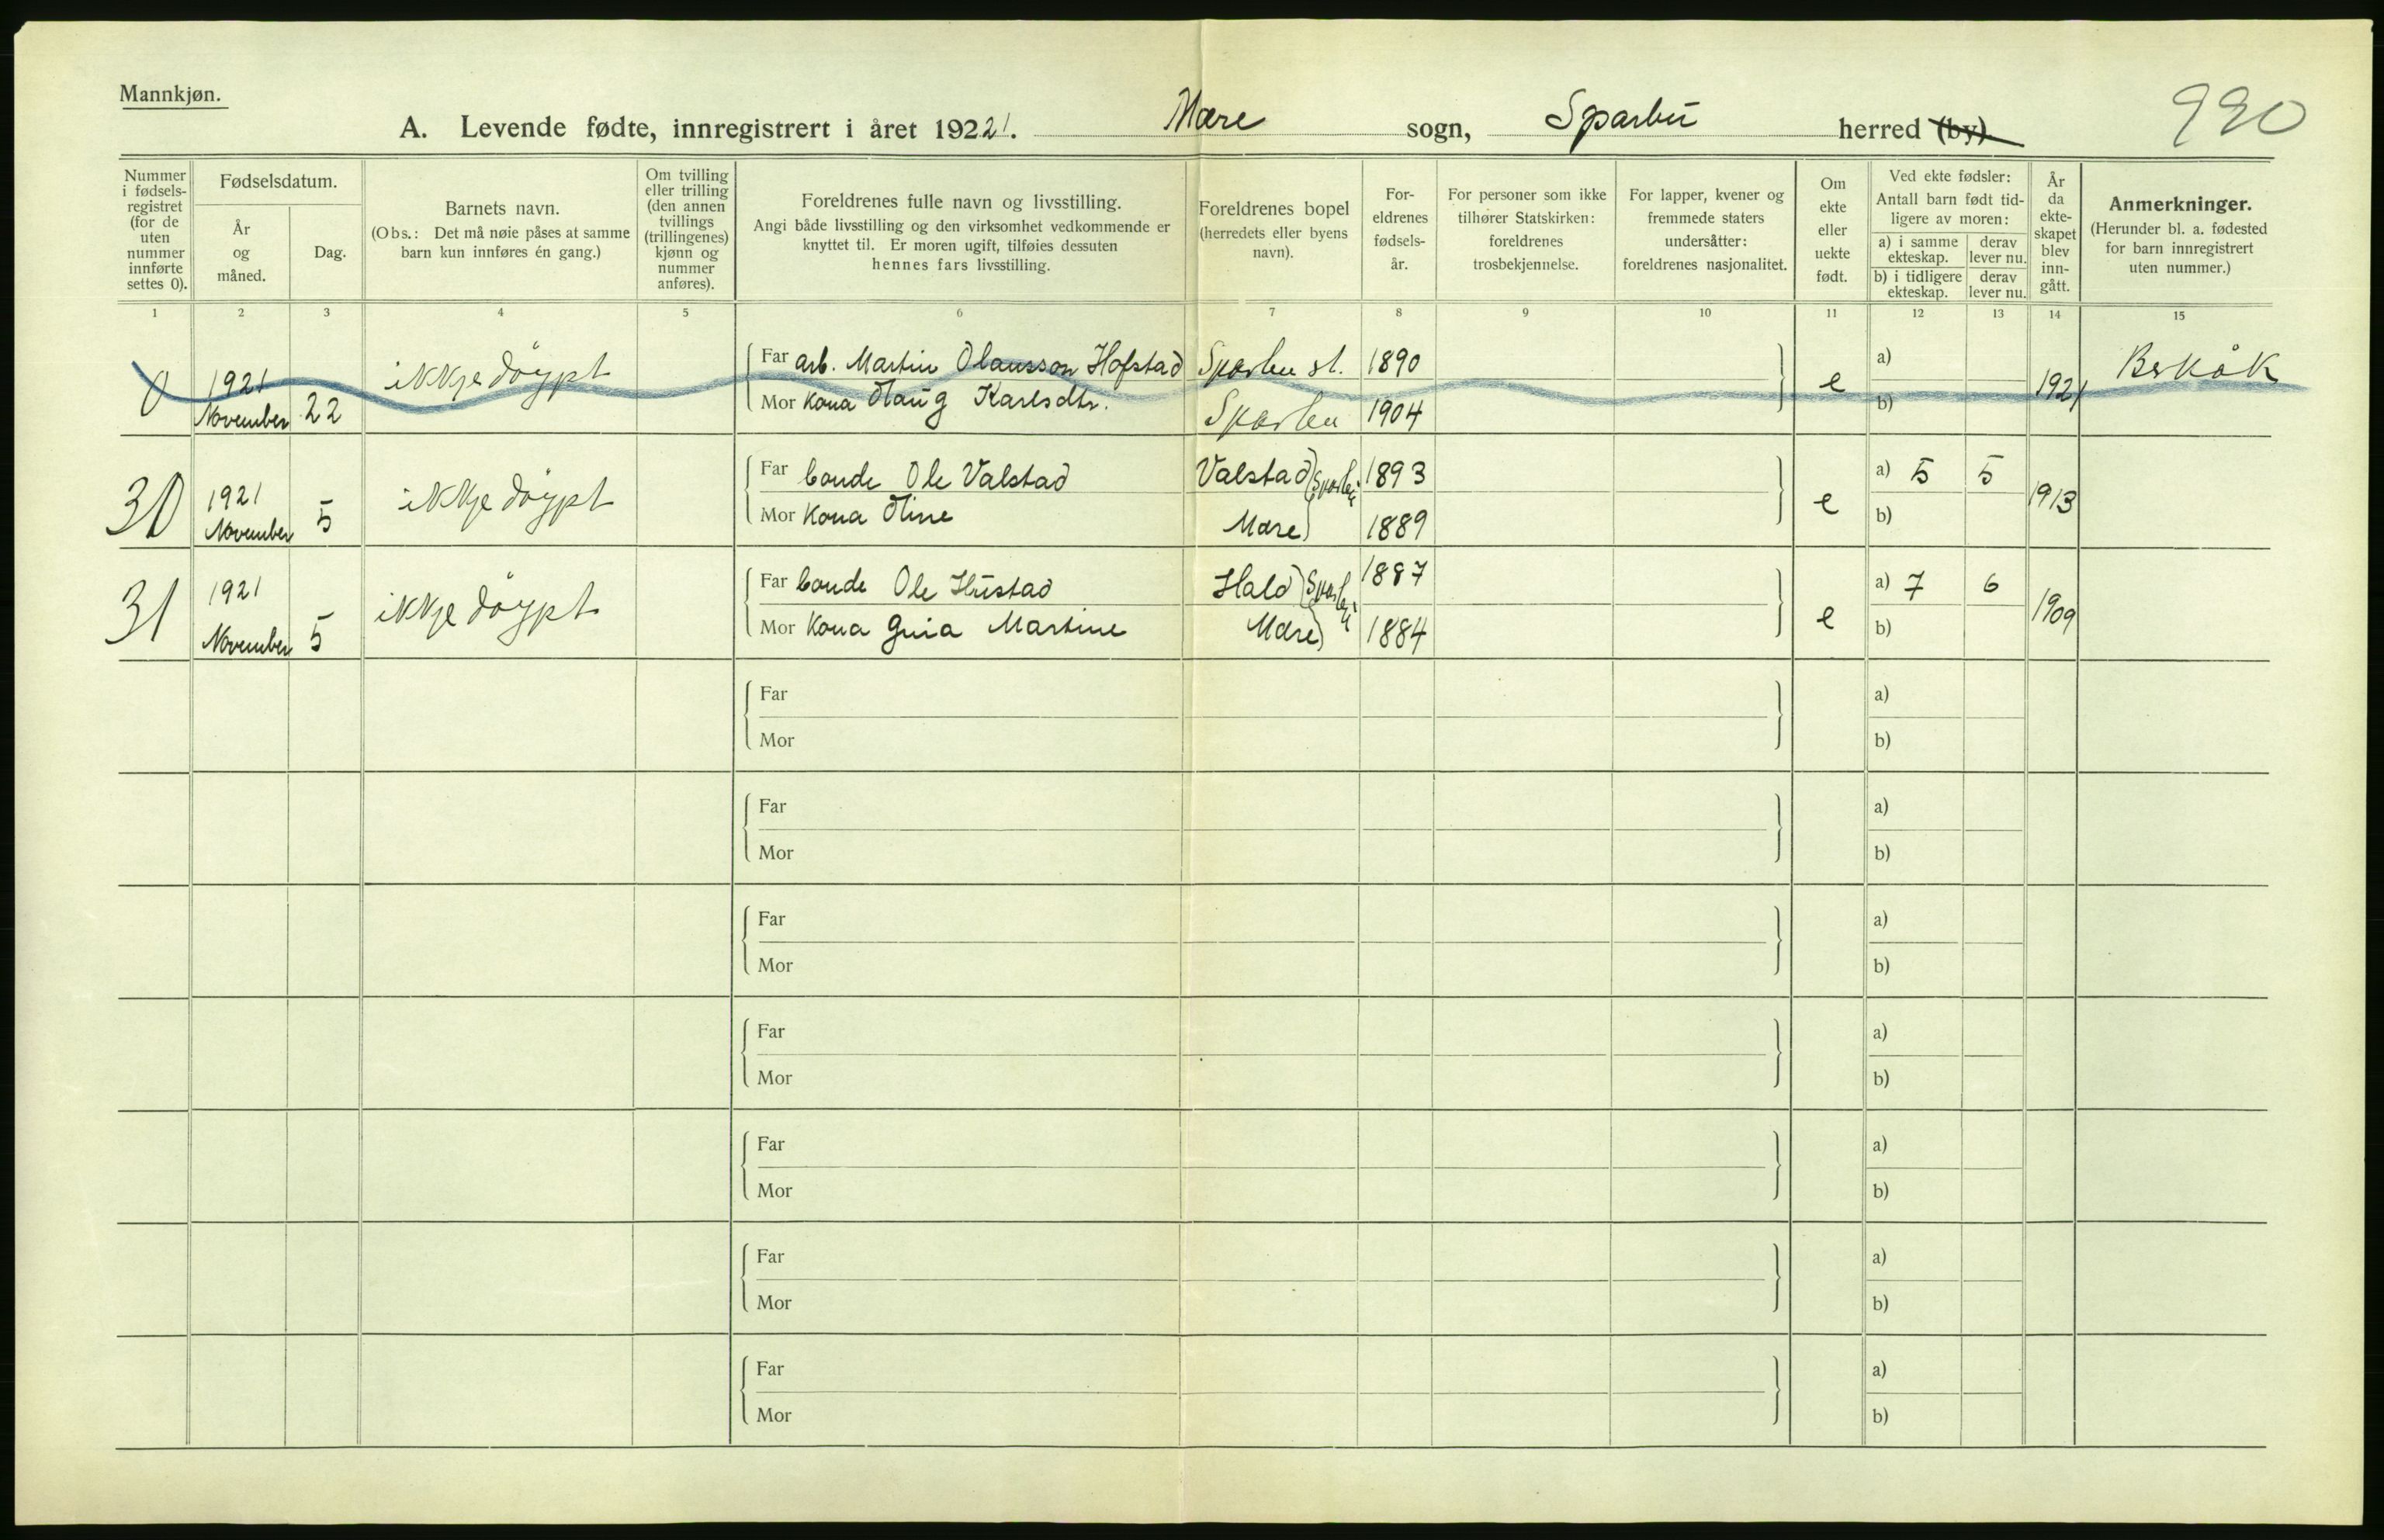 Mannkjøn.
A. Levende fødte, innregistrert i året 1921. Mære sogn, Sparbu herred (by) 990
Nummer i fødselsregistret (for de uten nummer innførte settes 0).
Fødselsdatum.
År og måned.
Dag.
Barnets navn.
(Obs.: Det må nøie påses at samme barn kun innføres én gang.)
Om tvilling eller trilling (den annen tvillings (trillingenes) kjønn og nummer anføres).
Foreldrenes fulle navn og livsstilling.
Angi både livsstilling og den virksomhet vedkommende er knyttet til. Er moren ugift, tilføies dessuten hennes fars livsstilling.
Foreldrenes bopel (herredets eller byens navn).
Foreldrenes fødselsår.
For personer som ikke tilhører Statskirken: foreldrenes trosbekjennelse.
For lapper, kvener og fremmede staters undersåtter: foreldrenes nasjonalitet.
Om ekte eller uekte født.
Ved ekte fødsler:
Antall barn født tidligere av moren:
a) i samme ekteskap. derav lever nu.
b) i tidligere ekteskap. derav lever nu.
År da ekteskapet blev inngått.
Anmerkninger.
(Herunder bl. a. fødested for barn innregistrert uten nummer.)
1 2 3 4 5 6 7 8 9 10 11 12 13 14 15
0 1921 November 22 ikkje døypt Far arb. Martin Olausson Hofstad Sparbu st. 1890 e a) 1921 Berkåk
Mor Kona Olaug Karlsdtr. Sparbu 1904 b)
30 1921 November 5 ikkje døypt Far bonde Ole Valstad Valstad Sparbu 1893 e a) 5 5 1913
Mor Kona Oline Mære 1889 b)
31 1921 November 5 ikkje døypt Far bonde Ole Hustad Hald Sparbu 1887 e a) 7 6 1909
Mor Kona Martine Mære 1884 b)
Far a)
Mor b)
Far a)
Mor b)
Far a)
Mor b)
Far a)
Mor b)
Far a)
Mor b)
Far a)
Mor b)
Far a)
Mor b)